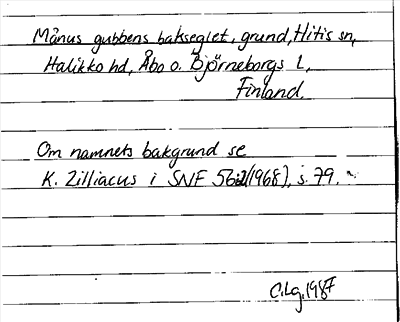 Månus gubbens bakseglet, grund, Hitis sn,
Halikko hd, Åbo o. Björneborgs L,
Finland.
Om namnets bakgrund se
K. Zilliacus i SNF 56 (1968), s. 79.
C.Lg. 1987